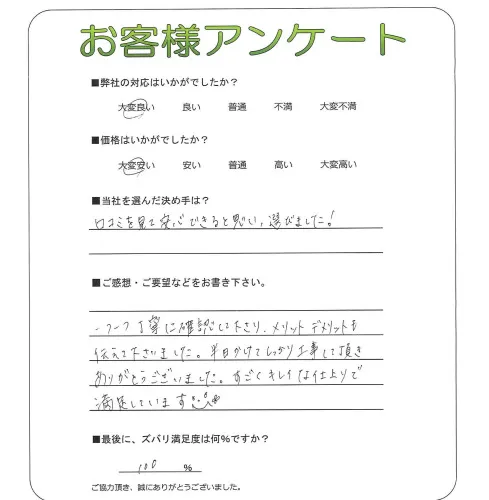 お客様アンケート
■弊社の対応はいかがでしたか？
大変良い 良い 普通 不満 大変不満
■価格はいかがでしたか？
大変安い 安い 普通 高い 大変高い
■当社を選んだ決め手は？
口コミを見て安心できると思い、選びました！
■ご感想・ご要望などをお書き下さい。
一つ一つ丁寧に確認して下さり、メリットデメリットも
伝えて下さいました。半日かけてしっかり工事して頂き
ありがとうございました。すごくキレイな仕上りで
満足しています
■最後に、ズバリ満足度は何％ですか？
100 %
ご協力頂き、誠にありがとうございました。